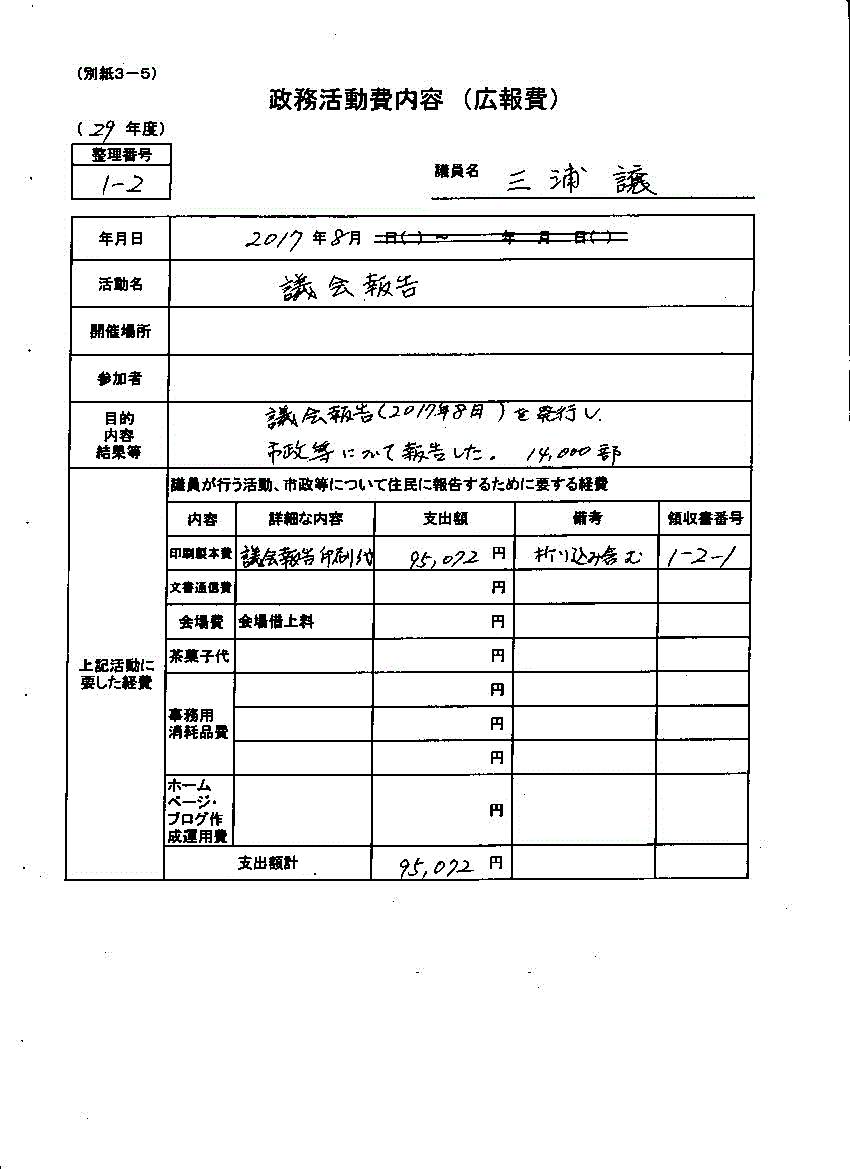 (別紙3-5)
政務活動費内容 (広報費)
(29年度)
整理番号
1-2
議員名 三浦 譲
年月日 2017年8月 日( ) ~ 年 月 日( )
活動名 議会報告
開催場所
参加者
目的
内容
結果等
議会報告(2017年8月)を発行し、
市政等について報告した。 14,000部
上記活動に
要した経費
議員が行う活動、市政等について住民に報告するために要する経費
内容 詳細な内容 支出額 備考 領収書番号
印刷製本費 議会報告印刷代 95,072円 折り込み含む 1-2-1
文書通信費 円
会場費 会場借上料 円
茶菓子代 円
事務用
消耗品費
円
円
円
ホーム
ページ・
ブログ作
成運用費
円
支出額計 95,072円